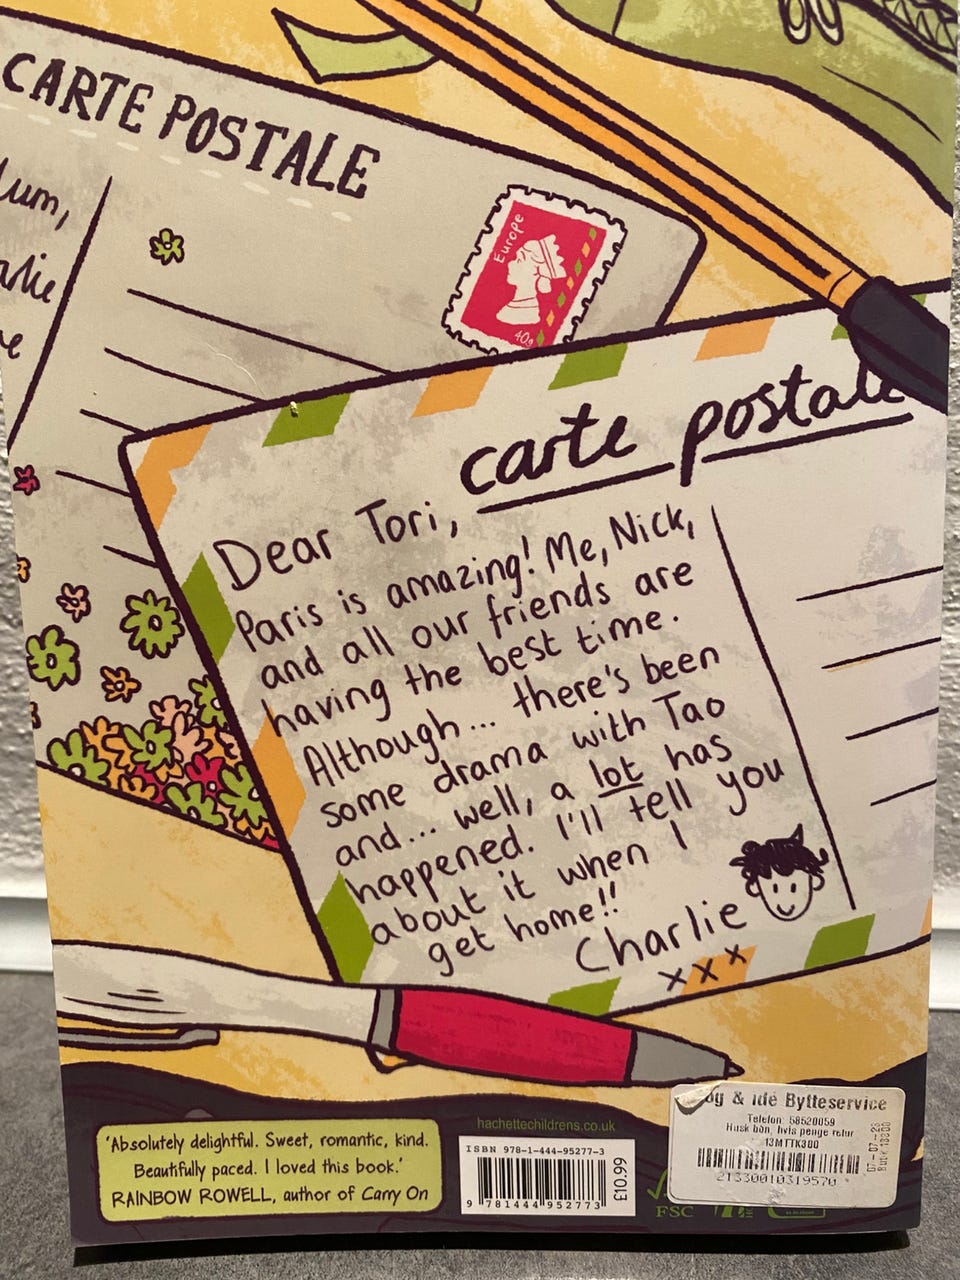 CARTE POSTALE
Europe
40g
carte postale
Dear Tori,
Paris is amazing! Me, Nick,
and all our friends are
having the best time.
Although... there's been
some drama with Tao
and... well, a lot has
happened. I'll tell you
about it when I
get home!!
Charlie
xxx
'Absolutely delightful. Sweet, romantic, kind.
Beautifully paced. I loved this book.'
RAINBOW ROWELL, author of Carry On
hachettechildrens.co.uk
ISBN 978-1-444-95277-3
9 781444 952773
£10.99
FSC
& idé Bytteservice
Telefon: 58520059
Husk bon, hvis penge retur
13MTTK300
21330010319570
07-07-23